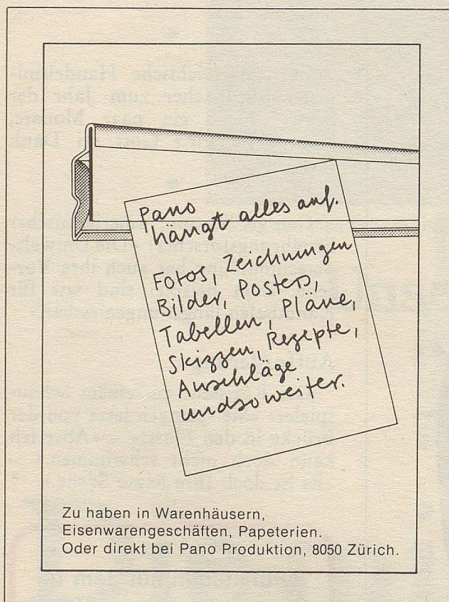 Pano
hängt alles auf.
Fotos, Zeichnungen
Bilder, Posters,
Tabellen, Pläne,
Skizzen, Rezepte,
Anschläge
undsoweiter.
Zu haben in Warenhäusern,
Eisenwarengeschäften, Papeterien.
Oder direkt bei Pano Produktion, 8050 Zürich.